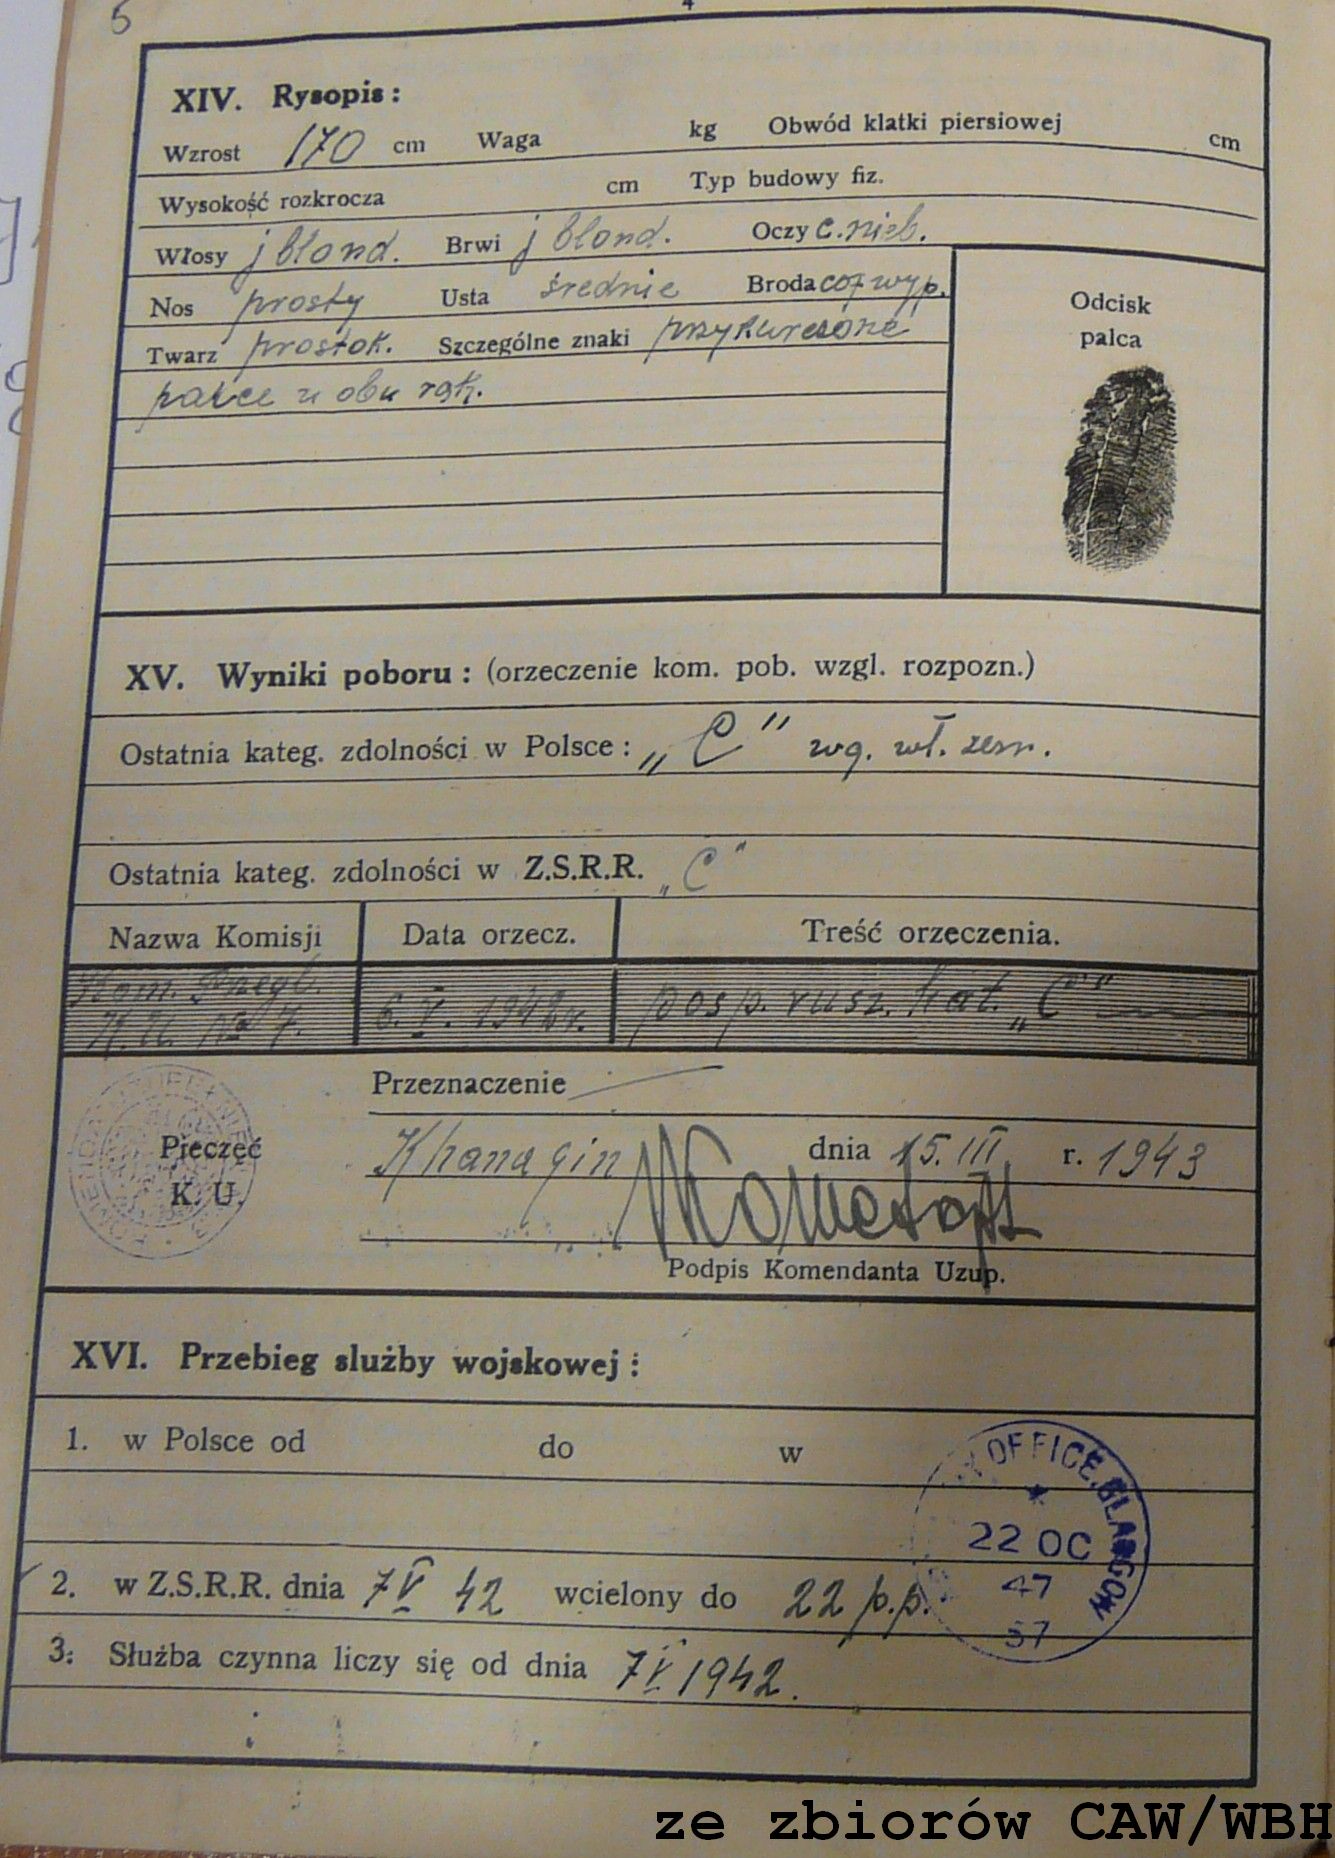 5
4
XIV. Rysopis :
Wzrost 170 cm Waga kg Obwód klatki piersiowej cm
Wysokość rozkrocza cm Typ budowy fiz.
Włosy j blond. Brwi j blond. Oczy c. nieb.
Nos prosty Usta średnie Broda cof wyp.
Twarz prostok. Szczególne znaki przykurczone
palce u obu rąk.
Odcisk
palca
XV. Wyniki poboru : (orzeczenie kom. pob. wzgl. rozpozn.)
Ostatnia kateg. zdolności w Polsce : „C" wg. wł. zezn.
Ostatnia kateg. zdolności w Z.S.R.R. „C"
Nazwa Komisji Data orzecz. Treść orzeczenia.
Kom. Przegl.
K.U. No 7. 6. V. 1942 r. posp. rusz. kat. „C"
Przeznaczenie
Pieczęć
K. U.
Khanaqin dnia 15. III r. 1943
Podpis Komendanta Uzup.
XVI. Przebieg służby wojskowej :
1. w Polsce od do w
OFFICE. GLASGOW
22 OC
47
57
2. w Z.S.R.R. dnia 7 V 42 wcielony do 22 p.p.
3. Służba czynna liczy się od dnia 7 V 1942.
ze zbiorów CAW/WBH